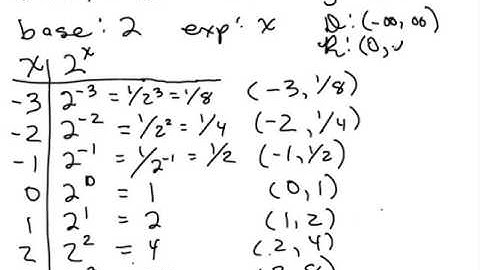 base: 2 exp: x D: (-∞, ∞)
R: (0,
x 2^x
-3 2^-3 = 1/2^3 = 1/8 (-3, 1/8)
-2 2^-2 = 1/2^2 = 1/4 (-2, 1/4)
-1 2^-1 = 1/2^-1 = 1/2 (-1, 1/2)
0 2^0 = 1 (0, 1)
1 2^1 = 2 (1, 2)
2 2^2 = 4 (2, 4)